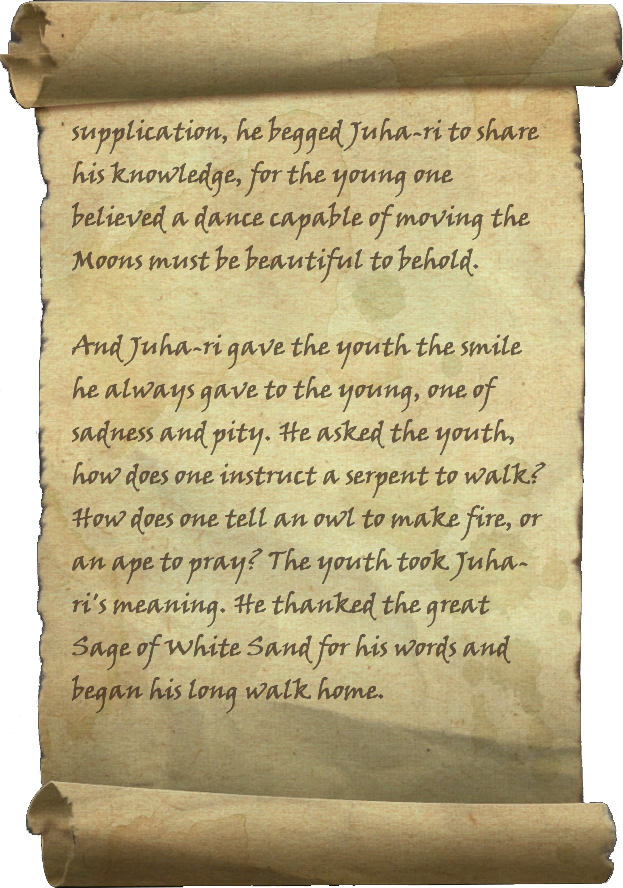 supplication, he begged Juha-ri to share
his knowledge, for the young one
believed a dance capable of moving the
Moons must be beautiful to behold.
And Juha-ri gave the youth the smile
he always gave to the young, one of
sadness and pity. He asked the youth,
how does one instruct a serpent to walk?
How does one tell an owl to make fire, or
an ape to pray? The youth took Juha-
ri's meaning. He thanked the great
Sage of White Sand for his words and
began his long walk home.